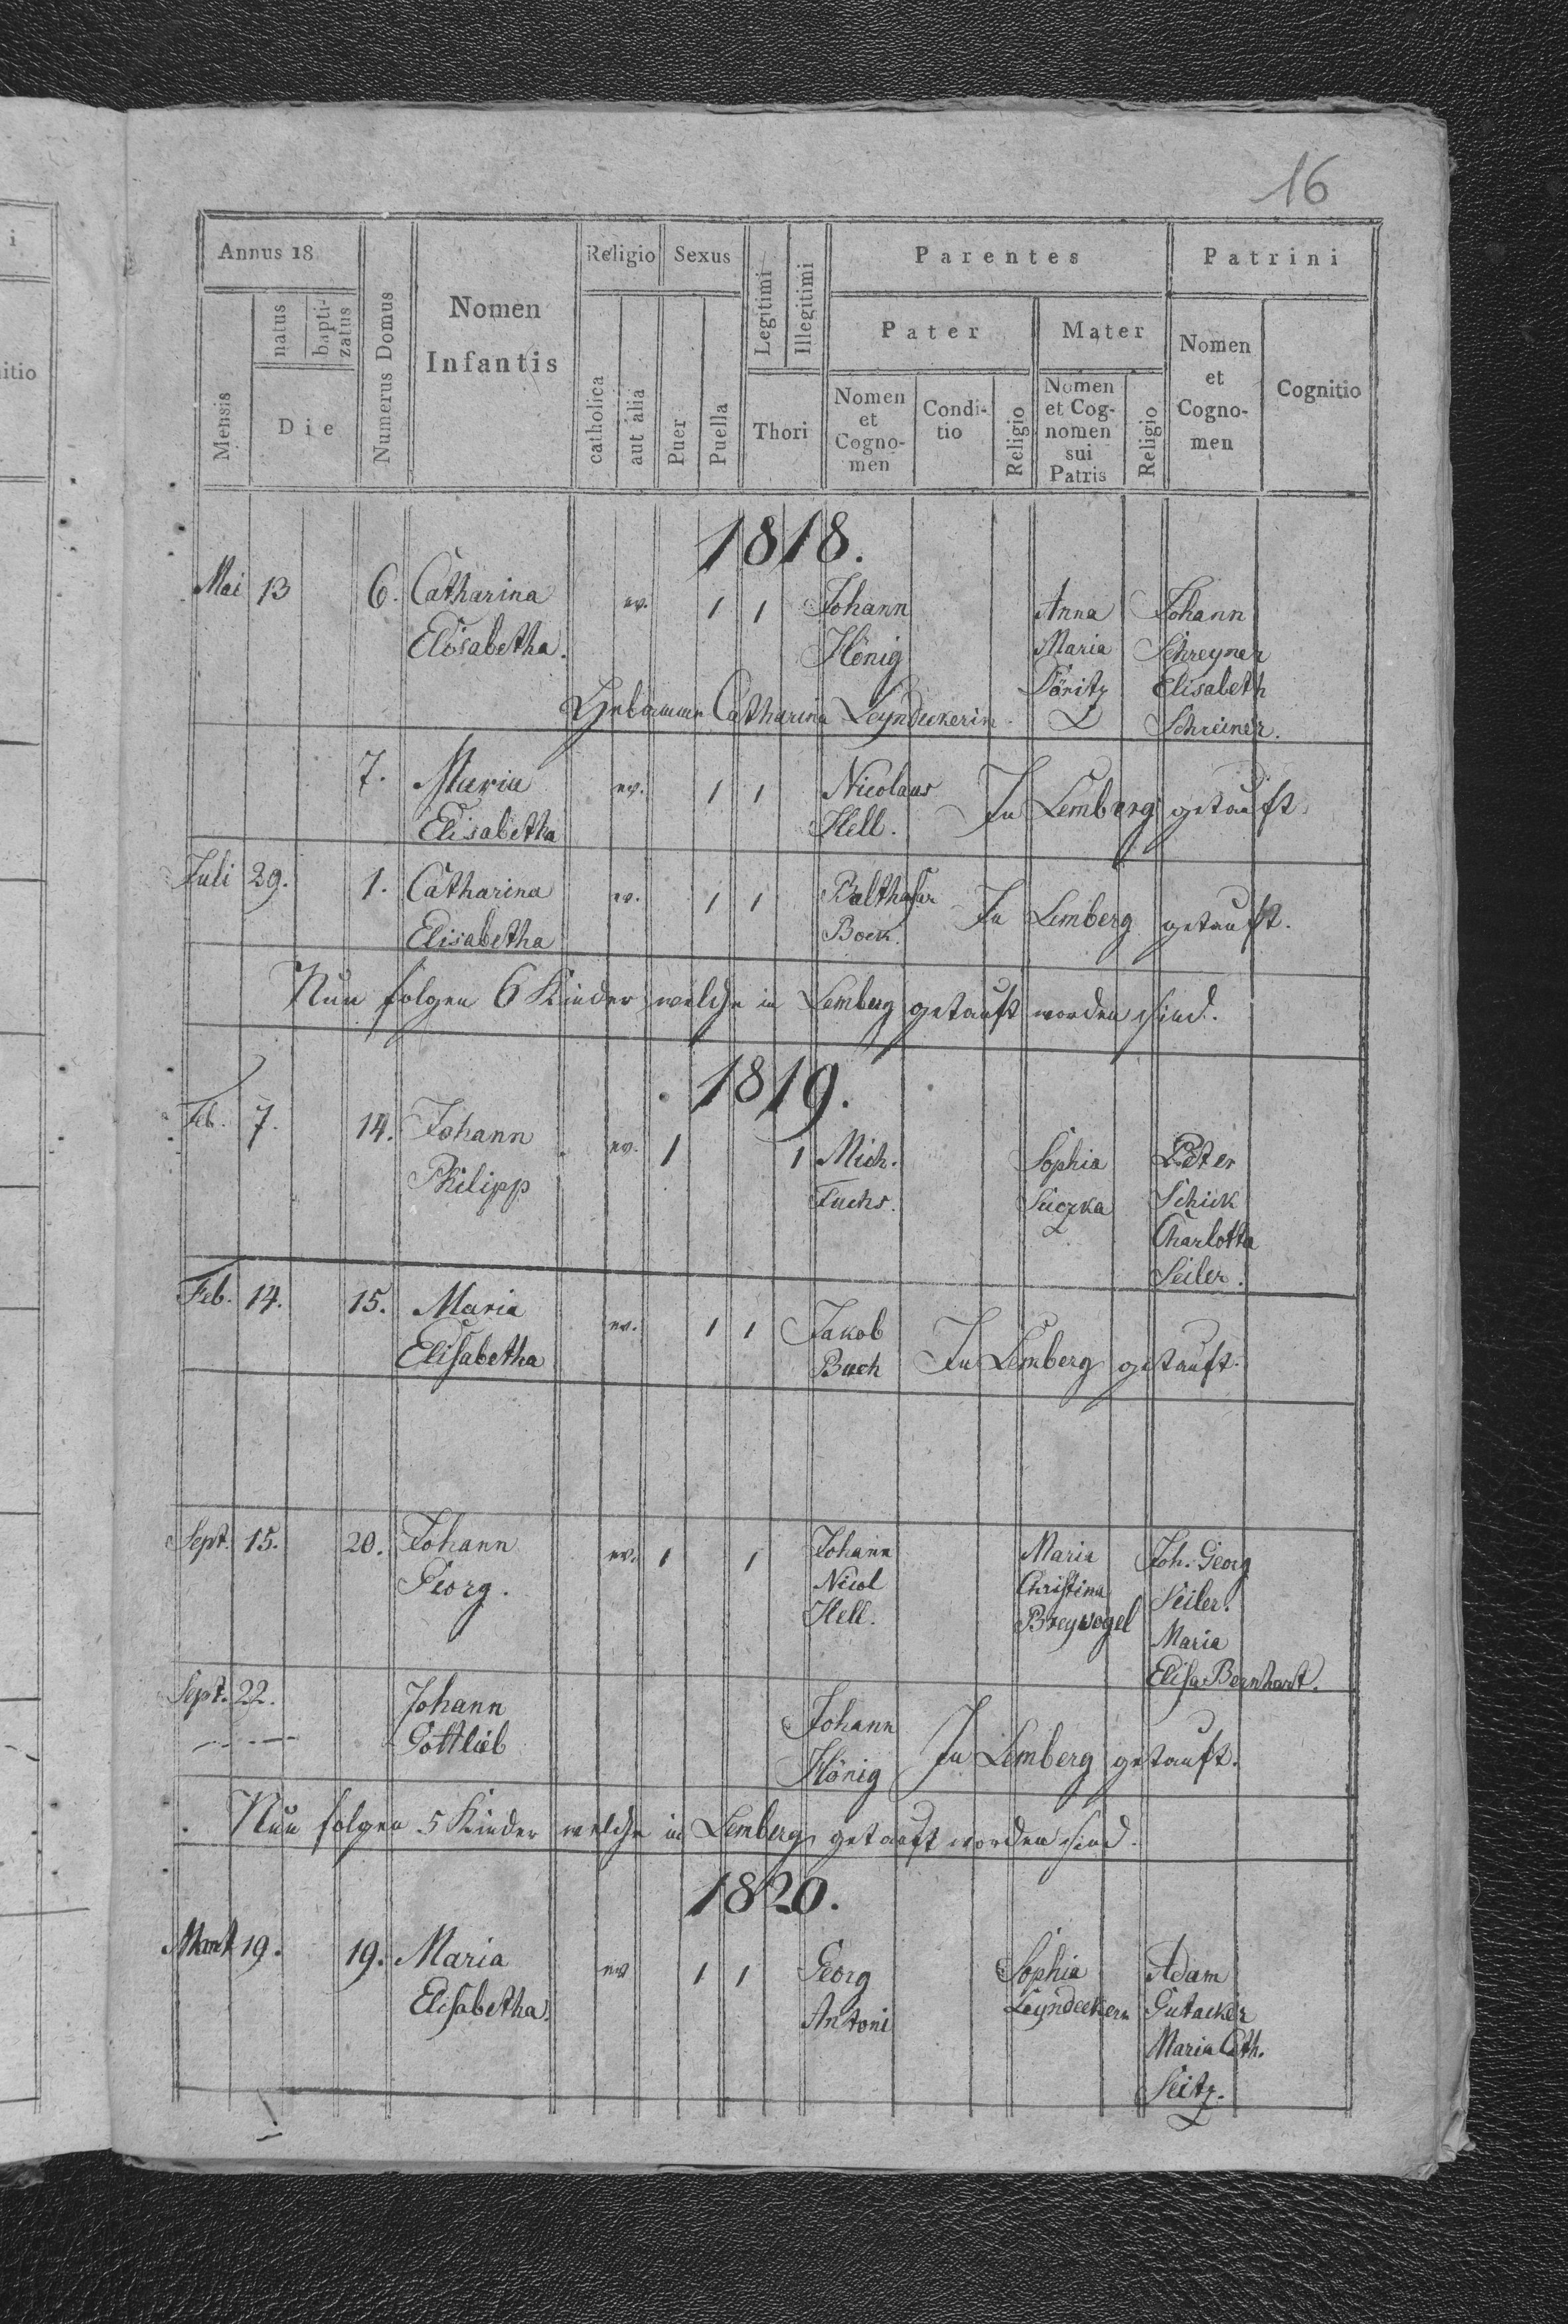 16
i
itio
Annus 18
Mensis
natus
bapti-
zatus
Die
Numerus Domus
Nomen
Infantis
Religio
catholica
aut alia
Sexus
Puer
Puella
Legitimi
Illegitimi
Thori
Parentes
Pater
Nomen
et
Cogno-
men
Condi-
tio
Religio
Mater
Nomen
et Cog-
nomen
sui
Patris
Religio
Patrini
Nomen
et
Cogno-
men
Cognitio
1818.
Mai 13 6. Catharina ev. 1 1 Johann Anna Johann
Elisabetha. Hönig Maria Schreyner
Döritz Elisabeth
Hebamme Catharina Leyndeckerin Schreiner.
7. Maria ev. 1 1 Nicolaus In Lemberg getauft.
Elisabetha Hell.
Juli 29. 1. Catharina ev. 1 1 Balthasar In Lemberg getauft.
Elisabetha Bock.
Nun folgen 6 Kinder welche in Lemberg getauft worden sind.
1819.
Feb. 7. 14. Johann ev. 1 1 Mich. Sophia Peter
Philipp Fuchs. Suczka Schick
Charlotta
Seiler.
Feb. 14. 15. Maria ev. 1 1 Jakob In Lemberg getauft.
Elisabetha Bach
Sept. 15. 20. Johann ev. 1 1 Johann Maria Joh. Georg
Georg. Nicol Christina Seiler.
Hell. Breyvogel Maria
Elisa Bernhart.
Sept. 22. Johann Johann In Lemberg getauft.
Gottlieb Hönig
Nun folgen 5 Kinder welche in Lemberg getauft worden sind.
1820.
19. 19. Maria ev 1 1 Georg Sophia Adam
Elisabetha. Antoni Leyndeckern Gutacker
Maria Cath.
Seitz.